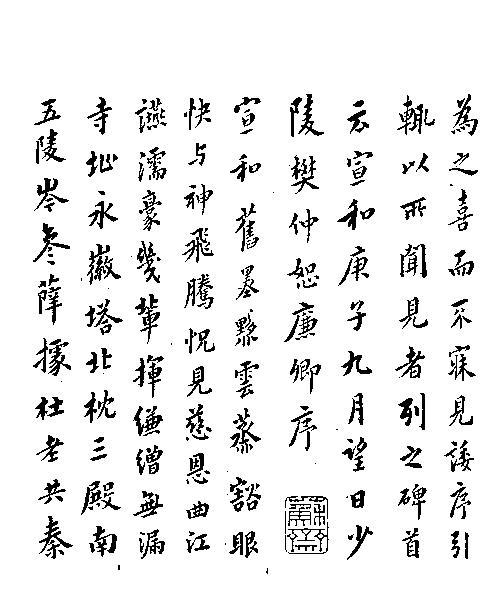 為之喜而不寐見諉序引
輒以所聞見者列之碑首
云宣和庚子九月望日少
陵樊仲恕廉卿序
宣和舊墨黟雲蒸豁眼
快与神飛騰怳見慈恩曲江
讌濡豪幾輩揮縑繒無漏
寺址永徽塔北枕三殿南
五陵岑參薛據杜老共秦